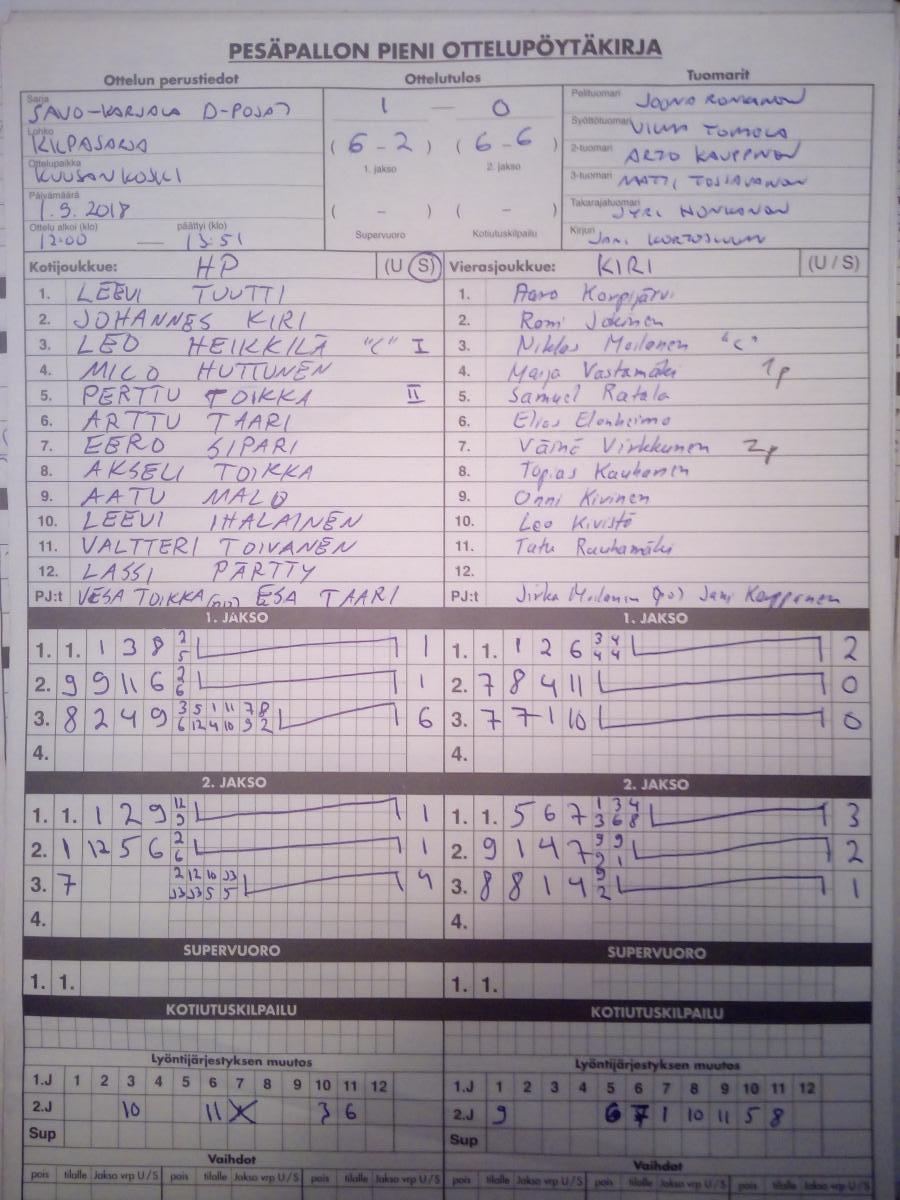 PESÄPALLON PIENI OTTELUPÖYTÄKIRJA
Ottelun perustiedot Ottelutulos Tuomarit
Sarja SAVO-KARJALA D-POJAT
Lohko KILPASARJA
Ottelupaikka KUUSANKOSKI
Päivämäärä 1.9.2018
Ottelu alkoi (klo) päättyi (klo)
12:00 — 13:51
1 — 0
( 6 - 2 ) ( 6 - 6 )
1. jakso 2. jakso
( - ) ( - )
Supervuoro Kotiutuskilpailu
Pelituomari
Syöttötuomari
2-tuomari ARTO KAUPPINEN
3-tuomari MATTI
Takarajatuomari JYRI HONKANEN
Kirjuri JANI
Kotijoukkue: HP (U S) Vierasjoukkue: KIRI (U / S)
1. LEEVI TUUTTI 1. Aaro Korpijärvi
2. JOHANNES KIRI 2. Romi Jokinen
3. LEO HEIKKILÄ "C" I 3. Niklas Moilanen "C"
4. MICO HUTTUNEN 4. Maija Vastamäki 1p
5. PERTTU TOIKKA II 5. Samuel Ratala
6. ARTTU TAARI 6. Elias Elonheimo
7. EERO SIPARI 7. Väinö Virkkunen 2p
8. AKSELI TOIKKA 8. Topias Kauhanen
9. AATU MALO 9. Onni Kivinen
10. LEEVI IHALAINEN 10. Leo Kivistö
11. VALTTERI TOIVANEN 11. Tatu Rauhamäki
12. LASSI PÄRTTY 12.
PJ:t VESA TOIKKA ESA TAARI PJ:t Jirka Moilanen Jani Kauppinen
1. JAKSO 1. JAKSO
1. 1. 1 3 8 2 5 1 1. 1. 1 2 6 3 4 4 4 2
2. 9 9 11 6 2 6 1 2. 7 8 4 11 0
3. 8 2 4 9 3 5 1 11 7 8 6 12 4 10 9 2 6 3. 7 7 1 10 0
4. 4.
2. JAKSO 2. JAKSO
1. 1. 1 2 9 12 9 1 1. 1. 5 6 7 1 3 4 3 6 8 3
2. 1 12 5 6 2 6 1 2. 9 1 4 7 9 9 2 1 2
3. 7 2 12 10 J3 J3 J3 5 5 4 3. 8 8 1 4 9 2 1
4. 4.
SUPERVUORO SUPERVUORO
1. 1. 1. 1.
KOTIUTUSKILPAILU KOTIUTUSKILPAILU
Lyöntijärjestyksen muutos Lyöntijärjestyksen muutos
1.J 1 2 3 4 5 6 7 8 9 10 11 12 1.J 1 2 3 4 5 6 7 8 9 10 11 12
2.J 10 11 3 6 2.J 9 6 7 1 10 11 5 8
Sup Sup
Vaihdot Vaihdot
pois tilalle Jakso vrp U/S pois tilalle Jakso vrp U/S pois tilalle Jakso vrp U/S pois tilalle Jakso vrp U/S